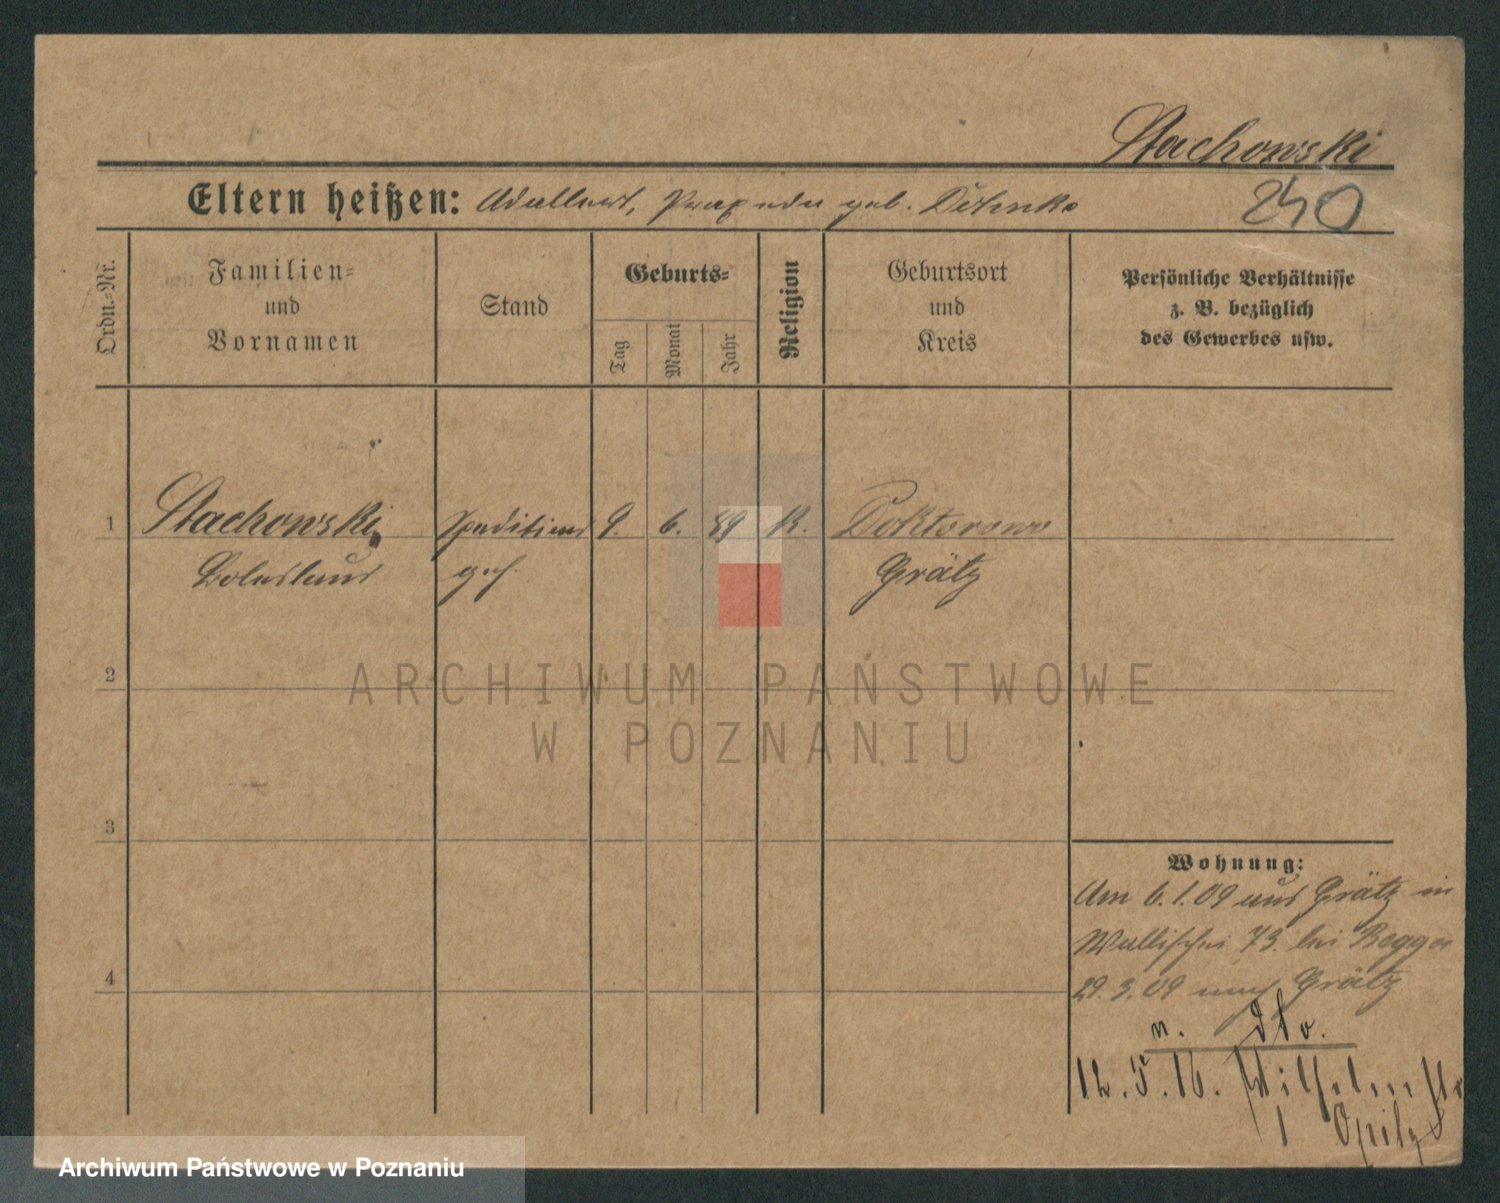 Stachowski
Eltern heißen: Adalbert, Praxeda geb.
240
Ordn.-Nr.
Familien-
und
Vornamen
Stand
Geburts-
Tag
Monat
Jahr
Religion
Geburtsort
und
Kreis
Persönliche Verhältnisse
z. B. bezüglich
des Gewerbes usw.
1 Stachowski, Speditions 9. 6. 89 K. Doktorowo
Boleslaus geh. Grätz
2
3
4
Wohnung:
Am 6.1.09 aus Grätz in
Wallischei 73. bei
29.3.09 nach Grätz
n. dto.
12.5.16. Wilhelmstr
1 Opitz
ARCHIWUM PAŃSTWOWE
W POZNANIU
Archiwum Państwowe w Poznaniu